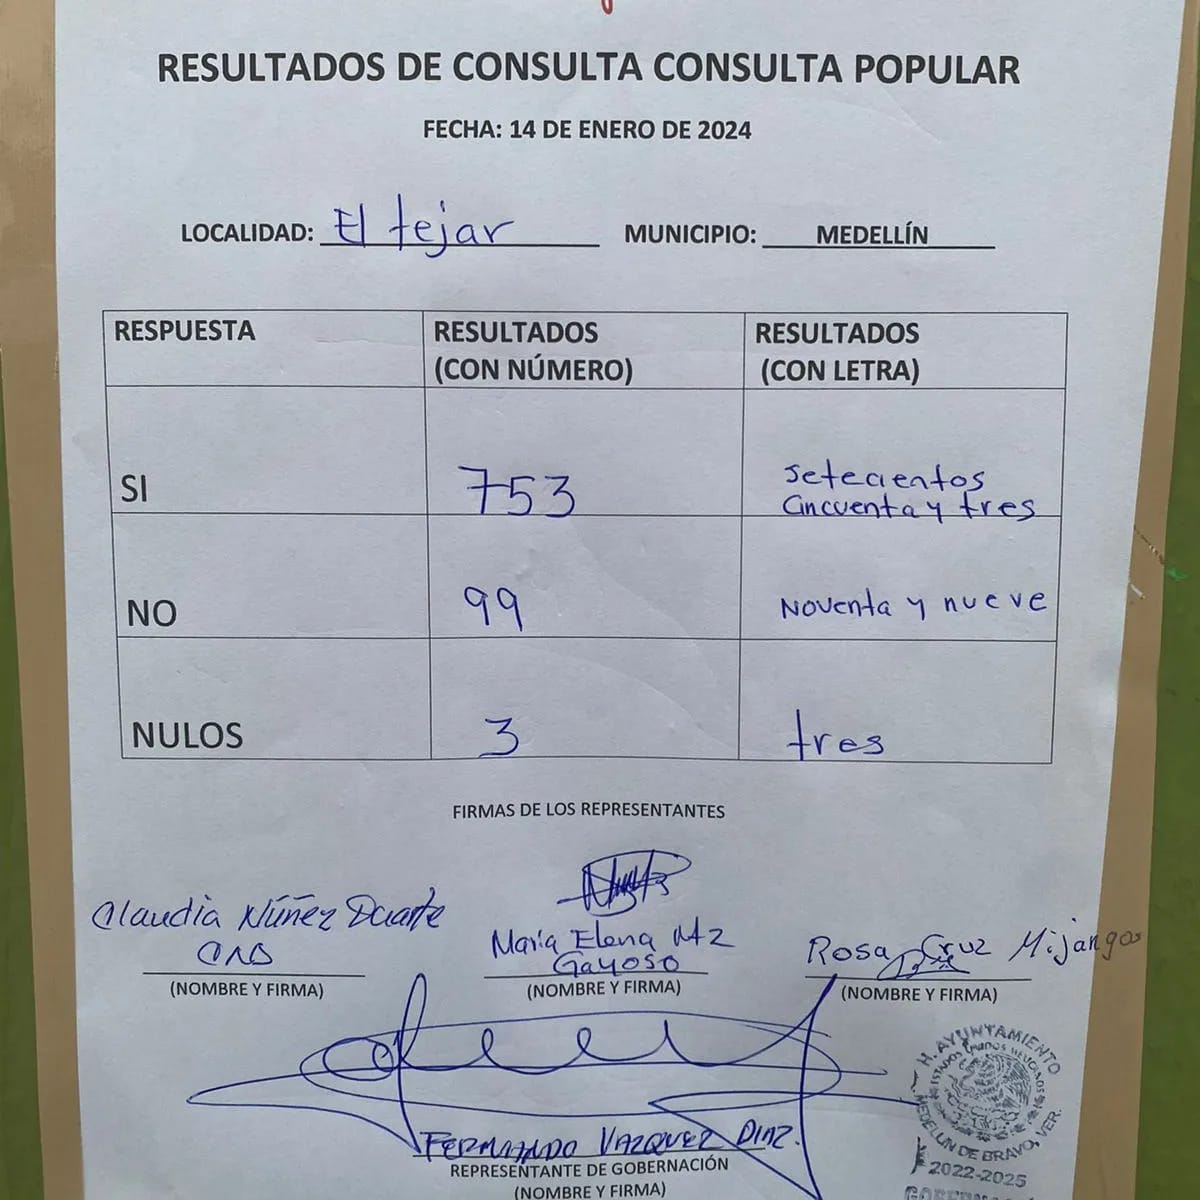 RESULTADOS DE CONSULTA CONSULTA POPULAR
FECHA: 14 DE ENERO DE 2024
LOCALIDAD: El tejar MUNICIPIO: MEDELLÍN
RESPUESTA
RESULTADOS
(CON NÚMERO)
RESULTADOS
(CON LETRA)
SI
753
setecientos
cincuenta y tres
NO
99
Noventa y nueve
NULOS
3
tres
FIRMAS DE LOS REPRESENTANTES
Claudia Núñez Duarte
(NOMBRE Y FIRMA)
María Elena Mtz
Gayoso
(NOMBRE Y FIRMA)
Rosa Cruz Mijangos
(NOMBRE Y FIRMA)
FERNANDO VAZQUEZ DIAZ.
REPRESENTANTE DE GOBERNACIÓN
(NOMBRE Y FIRMA)
H. AYUNTAMIENTO
ESTADOS UNIDOS MEXICANOS
MEDELLIN DE BRAVO, VER.
2022-2025